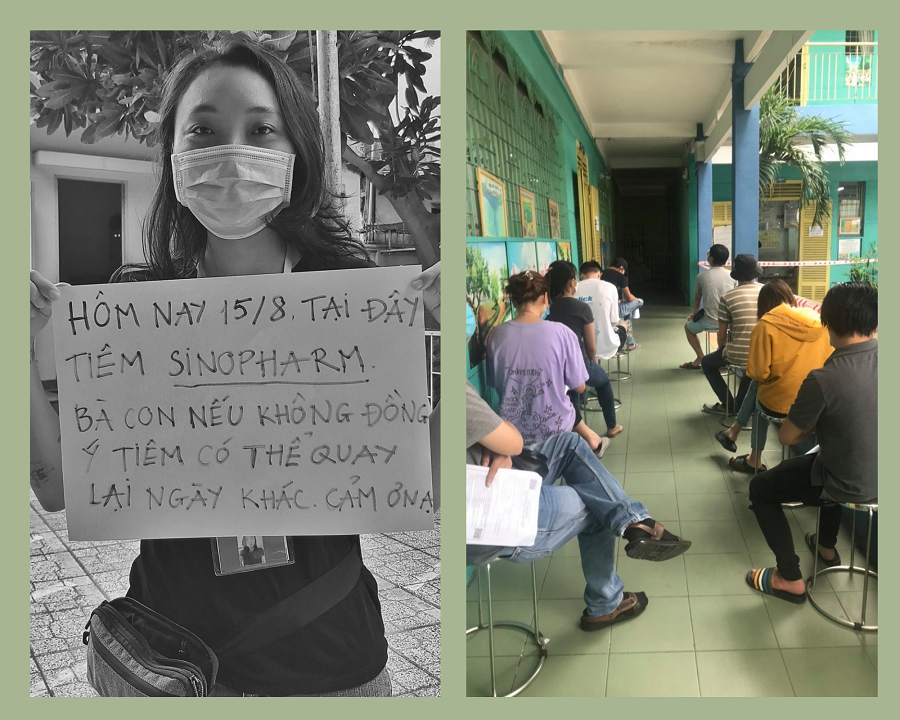 HÔM NAY 15/8. TẠI ĐÂY
TIÊM SINOPHARM.
BÀ CON NẾU KHÔNG ĐỒNG
Ý TIÊM CÓ THỂ QUAY
LẠI NGÀY KHÁC. CẢM ƠN Ạ